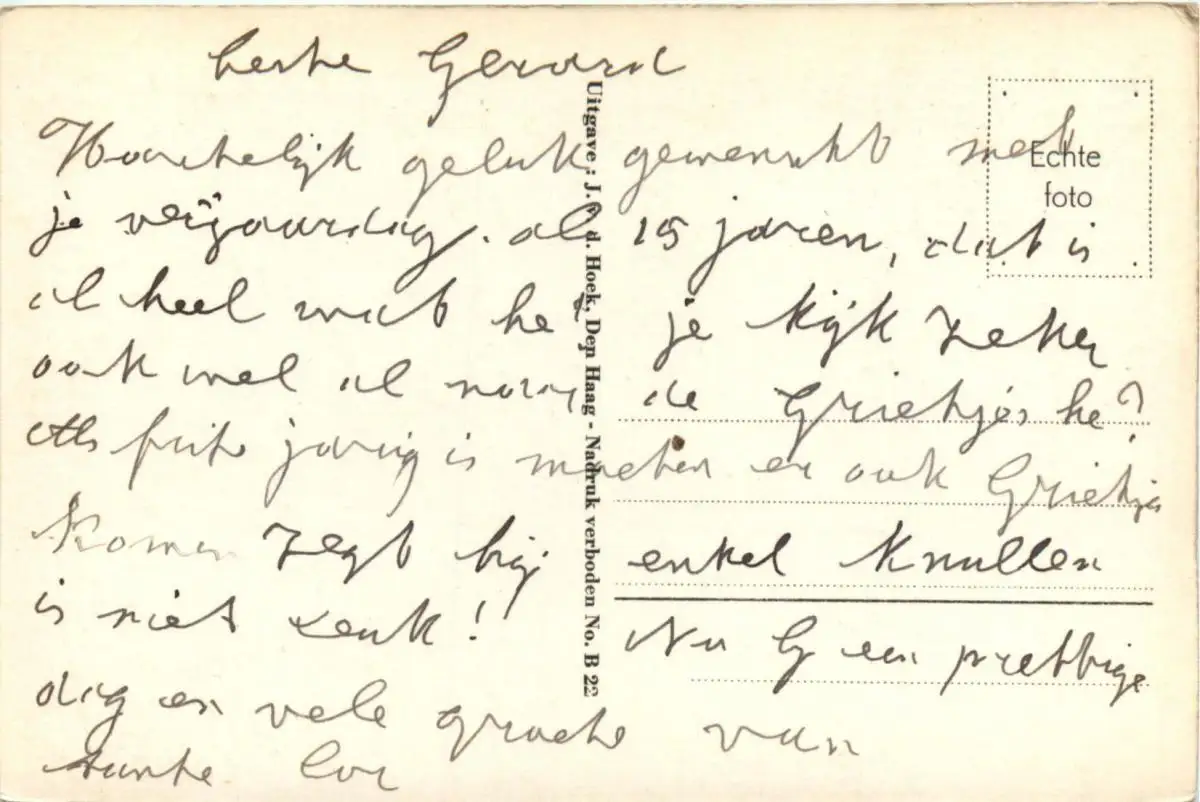 beste Gerard
Hartelijk geluk gewenscht met
je verjaardag. al 15 jaren, dat is
al heel wat he je kijk zeker
ook wel al naar de Grietjes he?
Als frits jarig is moeten er ook Grietjes
komen zegt hij enkel knullen
is niet leuk! Nu G een prettige
dag en vele groete van
tante
Echte
foto
Uitgave : J. v. d. Hoek, Den Haag - Nadruk verboden No. B 22